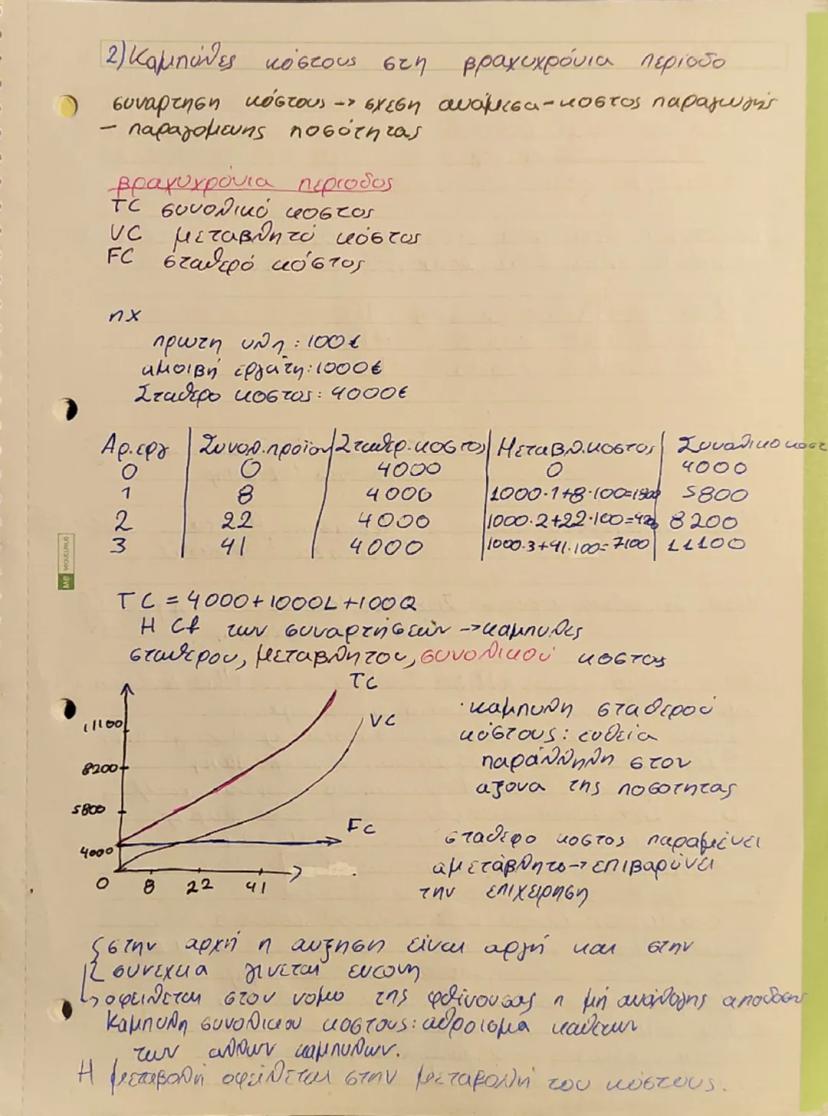 2) Καμπύλες κόστους στη βραχυχρόνια περίοδο
συναρτηση κόστους → σχεση ανάμεσα - κοστος παραγωγής
- παραγομενης ποσότητας
βραχυχρόνια περιοδος
TC συνολικό κοστος
VC μεταβλητό κόστος
FC σταθερό κόστος
πχ
πρωτη υλη: 100€
αμοιβή εργάτη: 1000€
Σταθερο κοστος: 4000€
Αρ.εργ | Συνολ.προϊον | Σταθερ.κοστος | Μεταβλ.κοστος | Συνολικο κοστ
0 | 0 | 4000 | 0 | 4000
1 | 8 | 4000 | 1000·1+8·100=1800 | 5800
2 | 22 | 4000 | 1000·2+22·100= | 8200
3 | 41 | 4000 | 1000·3+41·100=7100 | 11100
TC = 4000+1000L+100Q
Η των συναρτήσεών → καμπυλες
σταθερου, μεταβλητου, συνολικού κοστος
TC
VC
FC
11100
8200
5800
4000
0 8 22 41
· καμπυλη σταθερού
κόστους: ευθεία
παράλληλη στον
αξονα της ποσοτητας
σταθερο κοστος παραμένει
αμετάβλητο → επιβαρύνει
την επιχείρηση
στην αρχή η αυξηση είναι αργή και στην
συνεχεια γινεται εντονη
→ οφειλεται στον νομο της φθίνουσας η μή ανάλογης αποδοσ
Καμπυλη συνολικου κοστους: αθροισμα καθετων
των αλλων καμπυλων.
Η μεταβολή οφείλεται στην μεταβολή του κόστους.